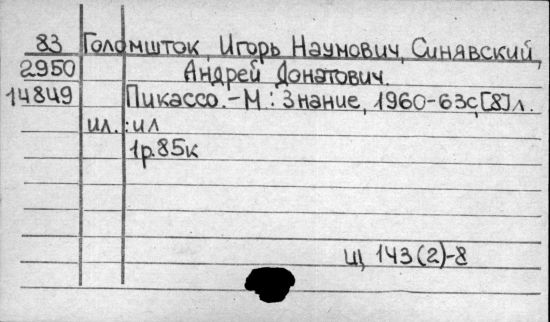 83 Голомшток, Игорь Наумович, Синявский,
2950 Андрей Донатович.
14849 Пикассо.-М.: Знание, 1960-63с,[8]л.
ил. :ил
1р.85к
Щ 143(2)-8